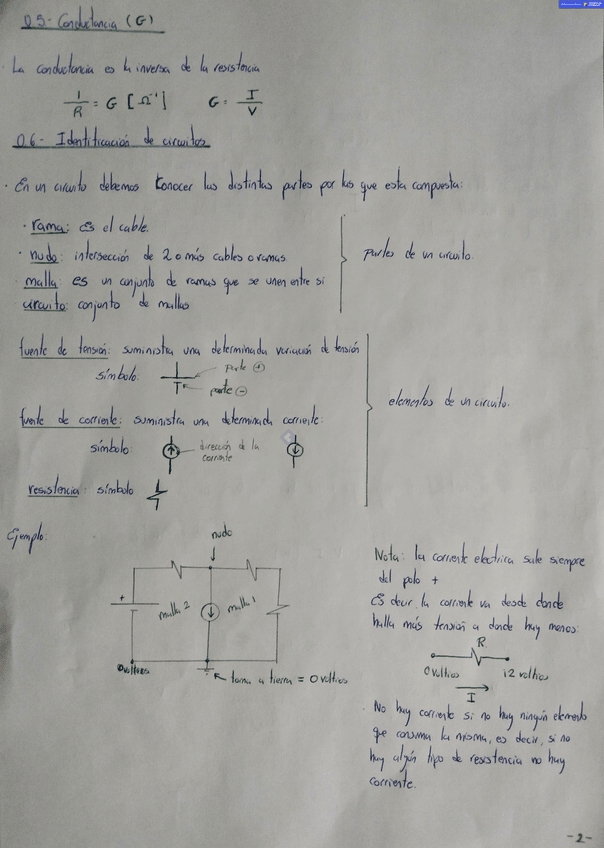 0.5- Conductancia (G)
· La conductancia es la inversa de la resistencia
1/R = G [Ω⁻¹] G = I/V
0.6- Identificación de circuitos
· En un circuito debemos conocer las distintas partes por las que esta compuesta:
· rama: es el cable.
· nudo: intersección de 2 o más cables o ramas.
· malla: es un conjunto de ramas que se unen entre si
circuito: conjunto de mallas
partes de un circuito.
fuente de tensión: suministra una determinada variación de tensión
símbolo: parte +
parte -
fuente de corriente: suministra una determinada corriente:
símbolo: dirección de la
corriente
resistencia: símbolo
elementos de un circuito.
Ejemplo:
nudo
+
malla 2 malla 1
0 voltios
toma a tierra = 0 voltios
Nota: la corriente electrica sale siempre
del polo +
Es decir, la corriente va desde donde
halla más tensión a donde hay menos:
R
0 voltios 12 voltios
I
· No hay corriente si no hay ningún elemento
que consuma la misma, es decir, si no
hay algún tipo de resistencia no hay
corriente.
-2-